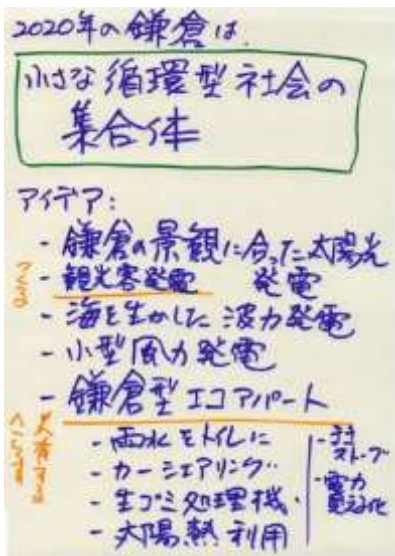 2020年の鎌倉は
小さな循環型社会の
集合体
アイデア:
- 鎌倉の景観に合った太陽光
発電
- 観光客発電
- 海を生かした波力発電
- 小型風力発電
- 鎌倉型エコアパート
- 雨水をトイレに
- カーシェアリング
- 生ゴミ処理機
- 太陽熱利用
ストーブ
- 電力
見える化
つくる
へらす